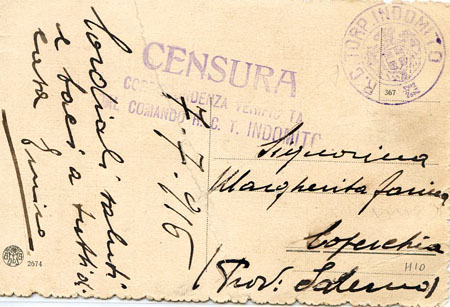 Cordiali saluti
e baci a tutti di
casa
7-7-916
CENSURA
CORRISPONDENZA VERIFICATA
COMANDO R. C. T. INDOMITO
R. C. TORP. INDOMITO
367
Signorina
Margherita Farina
Coperchia
(Prov: Salerno)
H10
2574